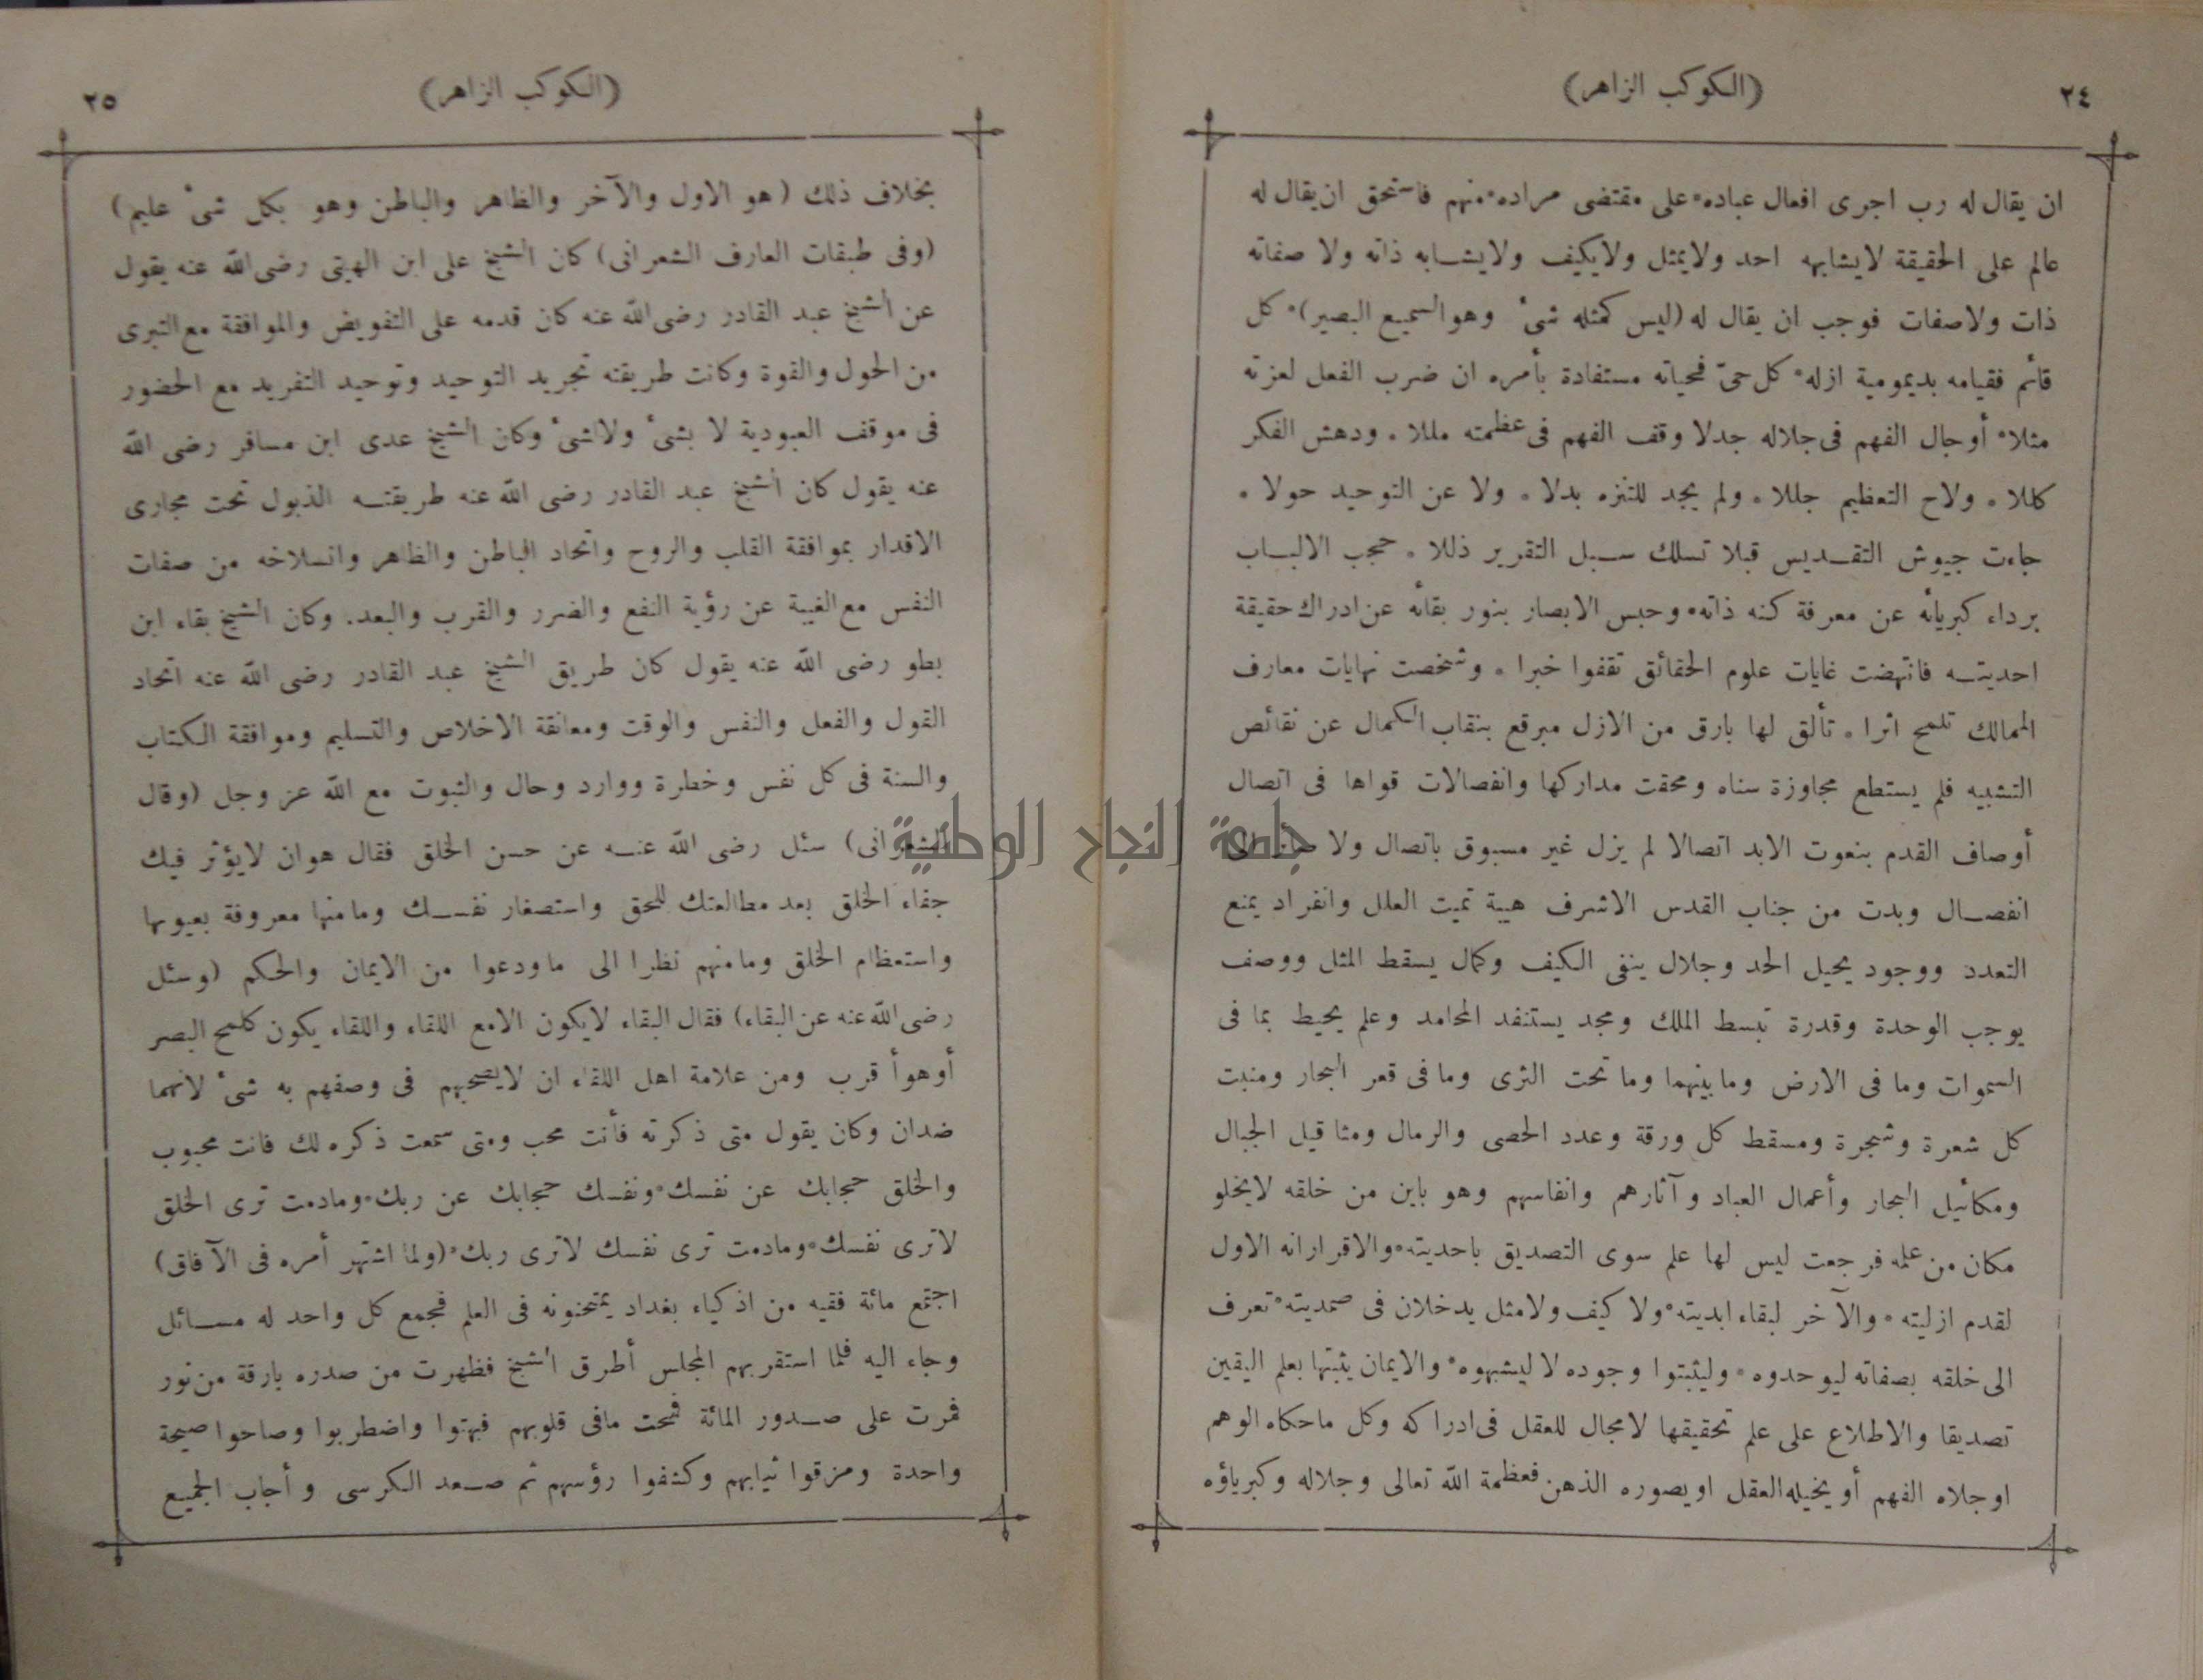 ٢٤
(الكوكب الزاهر)
ان يقال له رب اجرى افعال عباده٠ على مقتضى مراده٠ منهم فاستحق ان يقال له
عالم على الحقيقة لايشابهه احد ولايمثل ولايكيف ولايشابه ذاته ولا صفاته
ذات ولاصفات فوجب ان يقال له (ليس كمثله شىء وهو السميع البصير)٠ كل
قائم فقيامه بديمومية ازله٠ كل حىّ فحياته مستفادة بأمره ان ضرب الفعل لعزته
مثلا٠ أوجال الفهم فى جلاله جدلا وقف الفهم فى عظمته مللا ٠ ودهش الفكر
كللا ٠ ولاح التعظيم جللا ٠ ولم يجد للتنزه بدلا ٠ ولا عن التوحيد حولا ٠
جاءت جيوش التقديس قبلا تسلك سبل التقرير ذللا ٠ حجب الالباب
برداء كبريائه عن معرفة كنه ذاته٠ وحبس الابصار بنور بقائه عن ادراك حقيقة
احديته فانتهضت غايات علوم الحقائق تقفوا خبرا ٠ وشخصت نهايات معارف
الممالك تلمح اثرا ٠ تألق لها بارق من الازل مبرقع بنقاب الكمال عن نقائص
التشبيه فلم يستطع مجاوزة سناه ومحقت مداركها وانفصالات قواها فى اتصال
أوصاف القدم بنعوت الابد اتصالا لم يزل غير مسبوق باتصال ولا
انفصال وبدت من جناب القدس الاشرف هيبة تميت العلل وانفراد يمنع
التعدد ووجود يحيل الحد وجلال ينفى الكيف وكمال يسقط المثل ووصف
يوجب الوحدة وقدرة تبسط الملك ومجد يستنفد المحامد وعلم يحيط بما فى
السموات وما فى الارض وما بينهما وما تحت الثرى وما فى قعر البحار ومنبت
كل شعرة وشجرة ومسقط كل ورقة وعدد الحصى والرمال ومثاقيل الجبال
ومكائيل البحار وأعمال العباد وآثارهم وانفاسهم وهو باين من خلقه لايخلو
مكان من علمه فرجعت ليس لها علم سوى التصديق باحديته٠ والاقرارانه الاول
لقدم ازليته ٠ والآخر لبقاء ابديته٠ ولا كيف ولامثل يدخلان فى صمديته٠ تعرف
الى خلقه بصفاته ليوحدوه٠ وليثبتوا وجوده لا ليشبهوه٠ والايمان يثبتها بعلم اليقين
تصديقا والاطلاع على علم تحقيقها لامجال للعقل فى ادراكه وكل ماحكاه الوهم
اوجلاه الفهم أو يخيله العقل اويصوره الذهن فعظمة الله تعالى وجلاله وكبرياؤه
٢٥
(الكوكب الزاهر)
بخلاف ذلك (هو الاول والآخر والظاهر والباطن وهو بكل شىء عليم)
(وفى طبقات العارف الشعرانى) كان الشيخ على ابن الهيتى رضى الله عنه يقول
عن الشيخ عبد القادر رضى الله عنه كان قدمه على التفويض والموافقة مع التبرى
من الحول والقوة وكانت طريقته تجريد التوحيد وتوحيد التفريد مع الحضور
فى موقف العبودية لا بشىء ولاشىء وكان الشيخ عدى ابن مسافر رضى الله
عنه يقول كان الشيخ عبد القادر رضى الله عنه طريقته الذبول تحت مجارى
الاقدار بموافقة القلب والروح واتحاد الباطن والظاهر وانسلاخه من صفات
النفس مع الغيبة عن رؤية النفع والضرر والقرب والبعد. وكان الشيخ بقاء ابن
بطو رضى الله عنه يقول كان طريق الشيخ عبد القادر رضى الله عنه اتحاد
القول والفعل والنفس والوقت ومعانقة الاخلاص والتسليم وموافقة الكتاب
والسنة فى كل نفس وخطرة ووارد وحال والثبوت مع الله عز وجل (وقال
الشعرانى) سئل رضى الله عنه عن حسن الخلق فقال هوان لايؤثر فيك
جفاء الخلق بعد مطالعتك للحق واستصغار نفسك ومامنها معروفة بعيوبها
واستعظام الخلق ومامنهم نظرا الى ماودعوا من الايمان والحكم (وسئل
رضى الله عنه عن البقاء) فقال البقاء لايكون الامع اللقاء واللقاء يكون كلمح البصر
أوهوأقرب ومن علامة اهل اللقاء ان لايصحبهم فى وصفهم به شىء لانهما
ضدان وكان يقول متى ذكرته فأنت محب ومتى سمعت ذكره لك فانت محبوب
والخلق حجابك عن نفسك٠ ونفسك حجابك عن ربك٠ ومادمت ترى الخلق
لاترى نفسك٠ ومادمت ترى نفسك لاترى ربك٠ (ولما اشتهر أمره فى الآفاق)
اجتمع مائة فقيه من اذكياء بغداد يمتحنونه فى العلم فجمع كل واحد له مسائل
وجاء اليه فلما استقربهم المجلس أطرق الشيخ فظهرت من صدره بارقة من نور
فمرت على صدور المائة فمحت مافى قلوبهم فبهتوا واضطربوا وصاحوا صيحة
واحدة ومزقوا ثيابهم وكشفوا رؤسهم ثم صعد الكرسى وأجاب الجميع
جامعة النجاح الوطنية